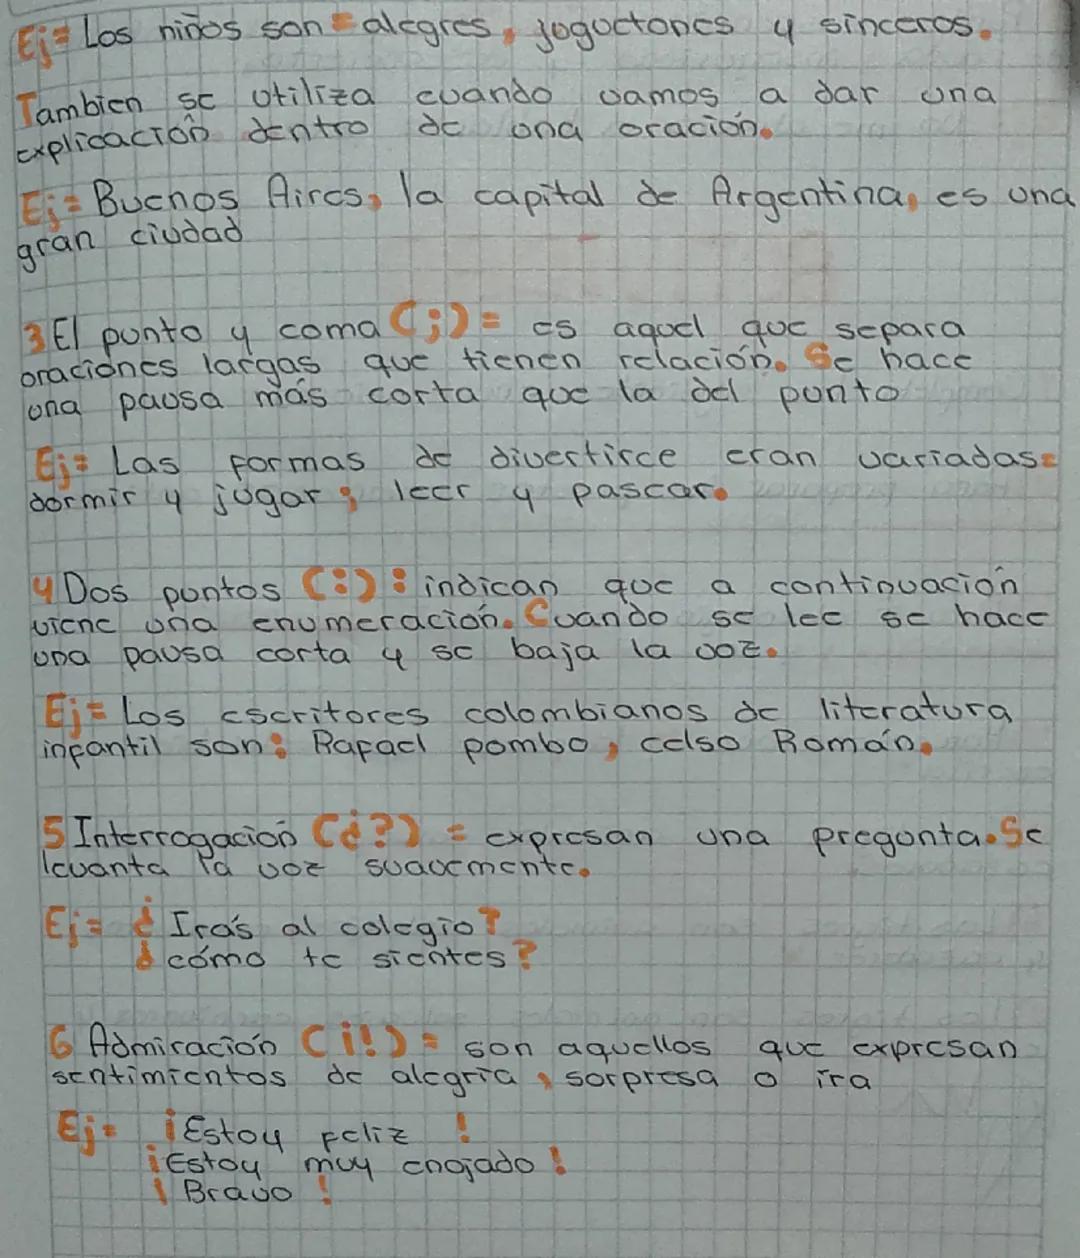 Ej= Los niños son= alegres, joguetones y sinceros.
Tambien se utiliza cuando vamos a dar una
explicación dentro de una oración.
Ej= Buenos Aires, la capital de Argentina, es una
gran ciudad
3 El punto y coma (;) = es aquel que separa
oraciones largas que tienen relación. Se hace
una pausa más corta que la del punto
Ej= Las formas de divertirce eran variadas:
dormir y jugar; leer y pasear.
4 Dos puntos (:): indican que a continuación
viene una enumeración. Cuando se lee se hace
una pausa corta y se baja la voz.
Ej= Los escritores colombianos de literatura
infantil son: Rafael pombo, celso Román.
5 Interrogación (¿?) = expresan una pregunta. Se
levanta la voz suavemente.
Ej= ¿Irás al colegio?
¿cómo te sientes?
6 Admiración (¡!) = son aquellos que expresan
sentimientos de alegría, sorpresa o ira
Ej= ¡Estoy feliz!
¡Estoy muy enojado!
¡Bravo!